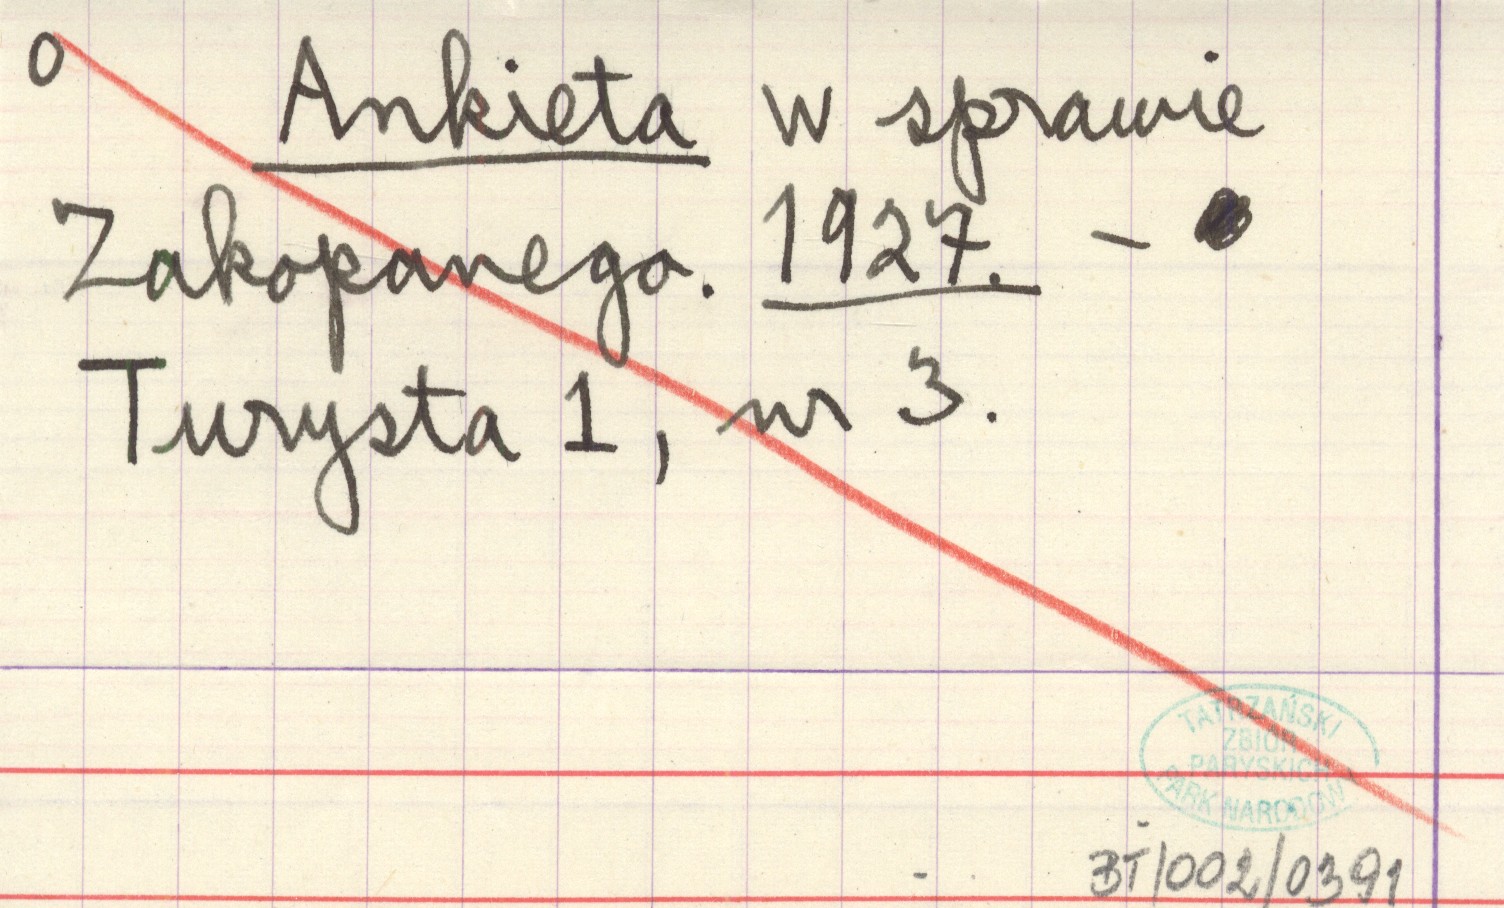 O
Ankieta w sprawie
Zakopanego. 1927. -
Turysta 1, nr 3.
TATRZAŃSKI
ZBIÓR
PARYSKICH
PARK NARODOW
BT/002/0391